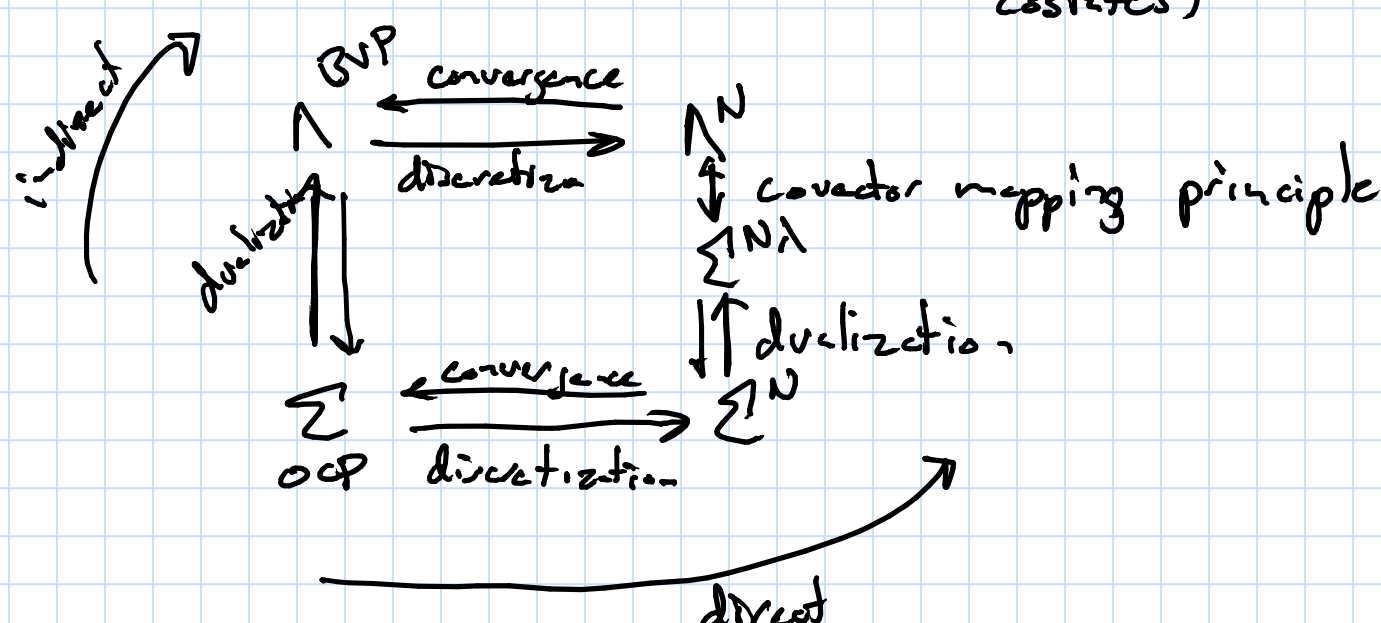 costates)
indirect
BVP
convergence
Λ
Λ^N
discretizn
covector mapping principle
dualizatn
Σ^Nλ
dualization
convergence
Σ
Σ^N
OCP
discretization
direct